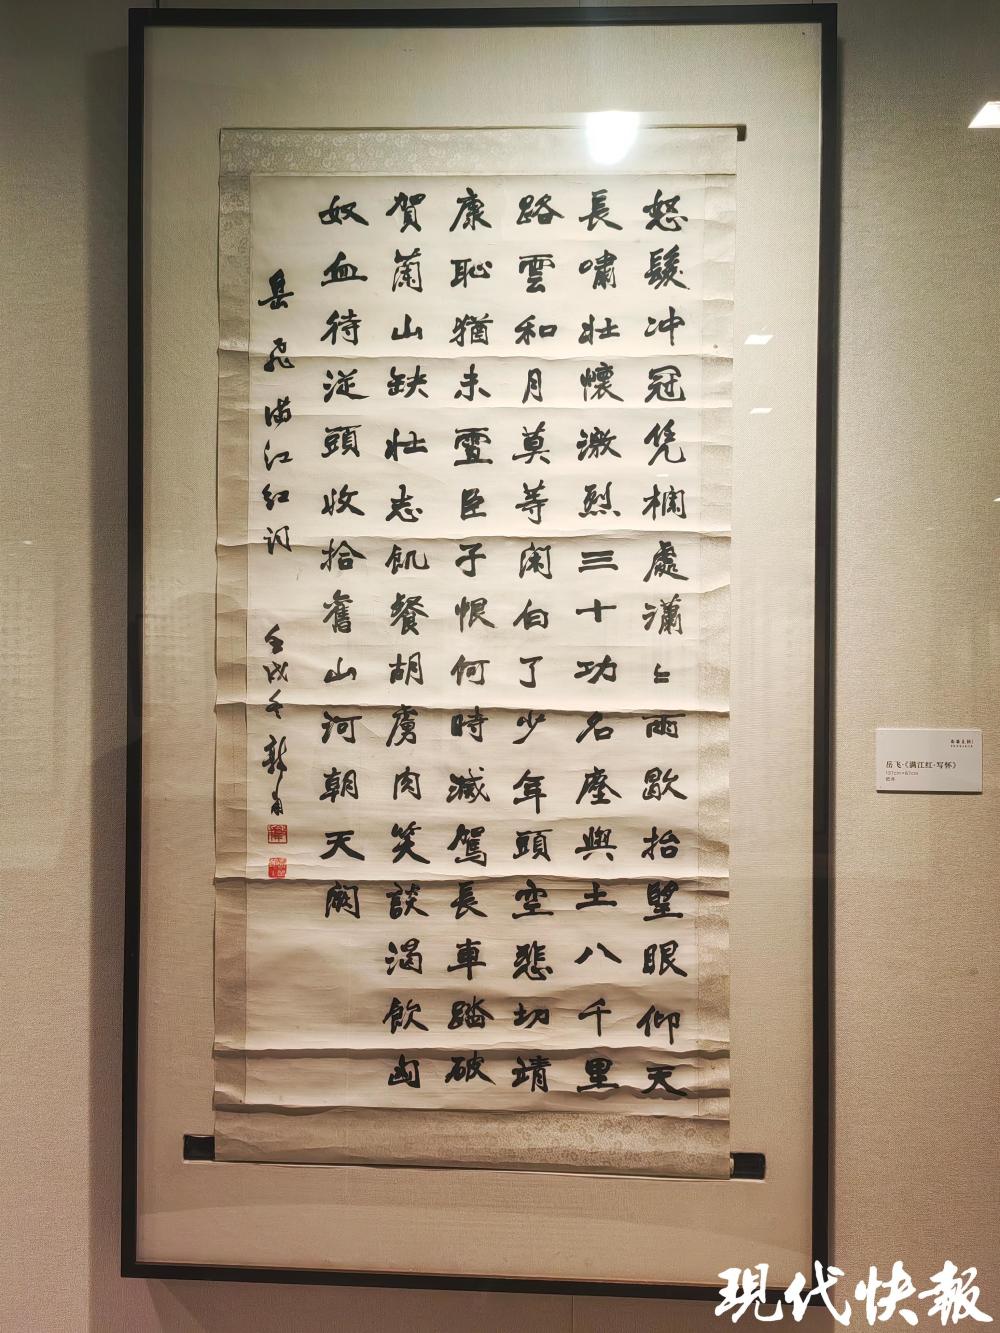 怒髮冲冠凭欄處瀟〻雨歇抬望眼仰天
長嘯壯懷激烈三十功名塵與土八千里
路雲和月莫等閑白了少年頭空悲切靖
康恥猶未雪臣子恨何時滅駕長車踏破
賀蘭山缺壯志飢餐胡虜肉笑談渴飲匈
奴血待従頭收拾舊山河朝天闕
岳飛满江红词 壬戌冬
岳飞·《满江红·写怀》
137cm×67cm
現代快報